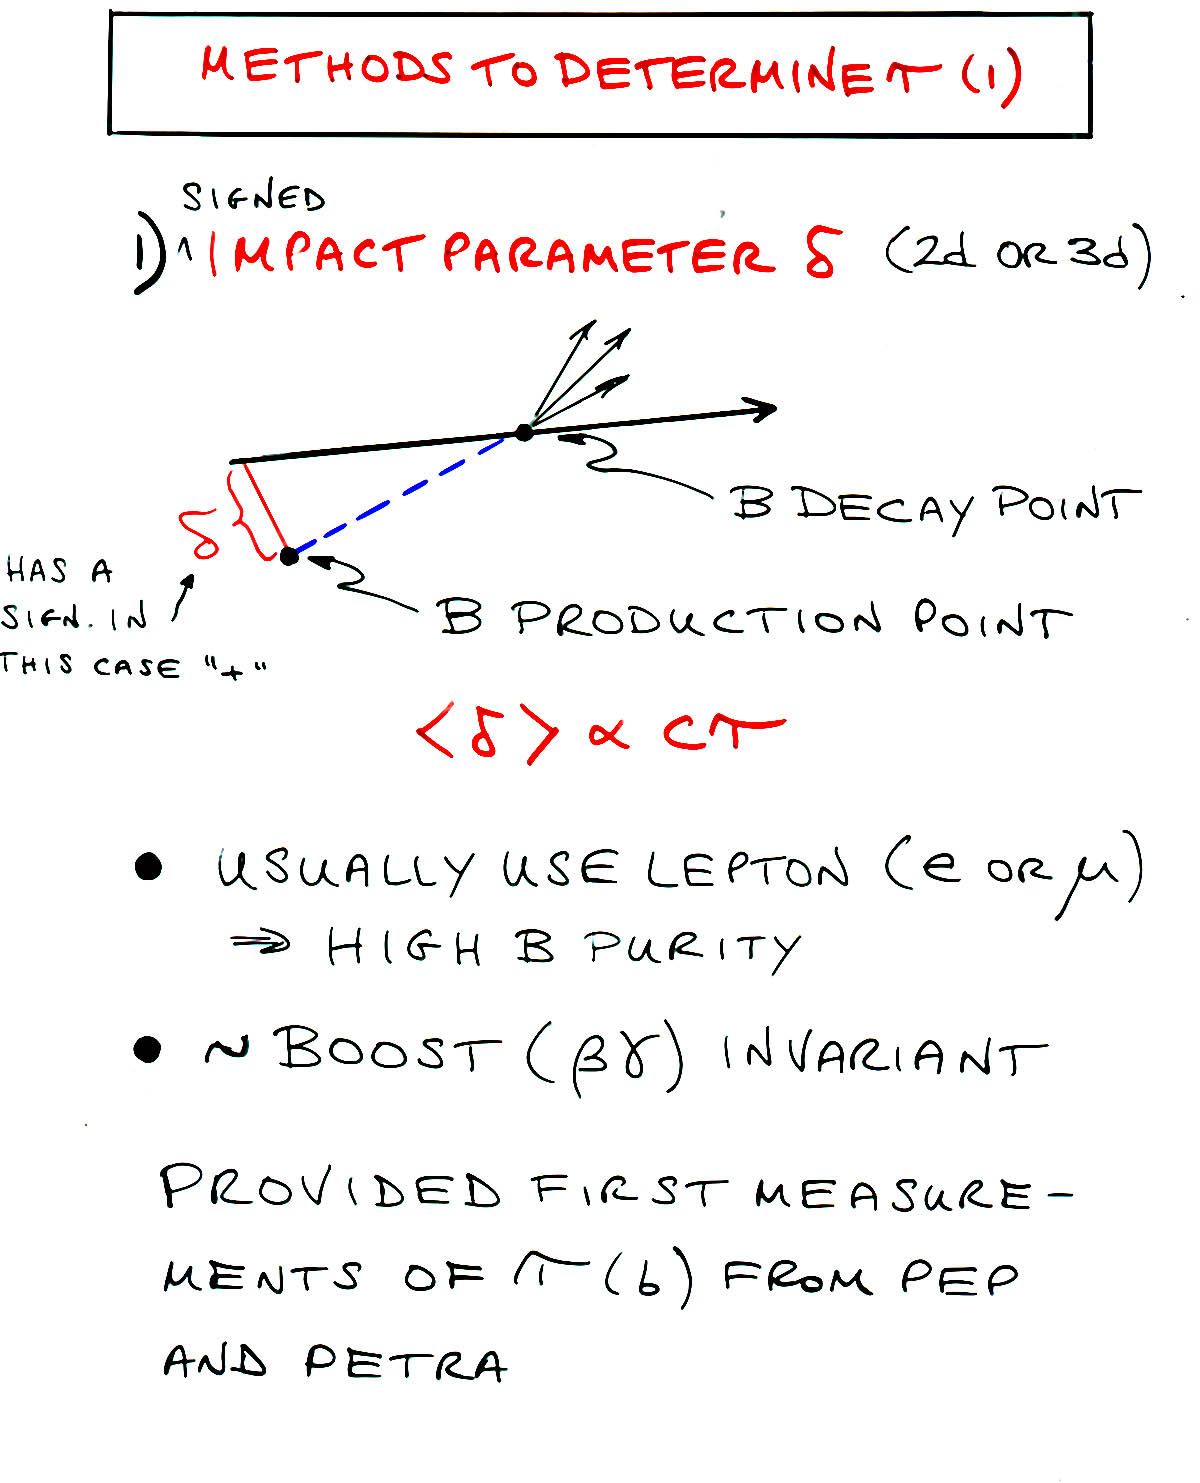 METHODS TO DETERMINE τ (1)
SIGNED
1) ^ IMPACT PARAMETER δ (2d OR 3d)
B DECAY POINT
δ
HAS A
SIGN. IN
THIS CASE "+"
B PRODUCTION POINT
<δ> ∝ cτ
● USUALLY USE LEPTON (e OR μ)
⇒ HIGH B PURITY
● ~ BOOST (βγ) INVARIANT
PROVIDED FIRST MEASURE-
MENTS OF τ(b) FROM PEP
AND PETRA